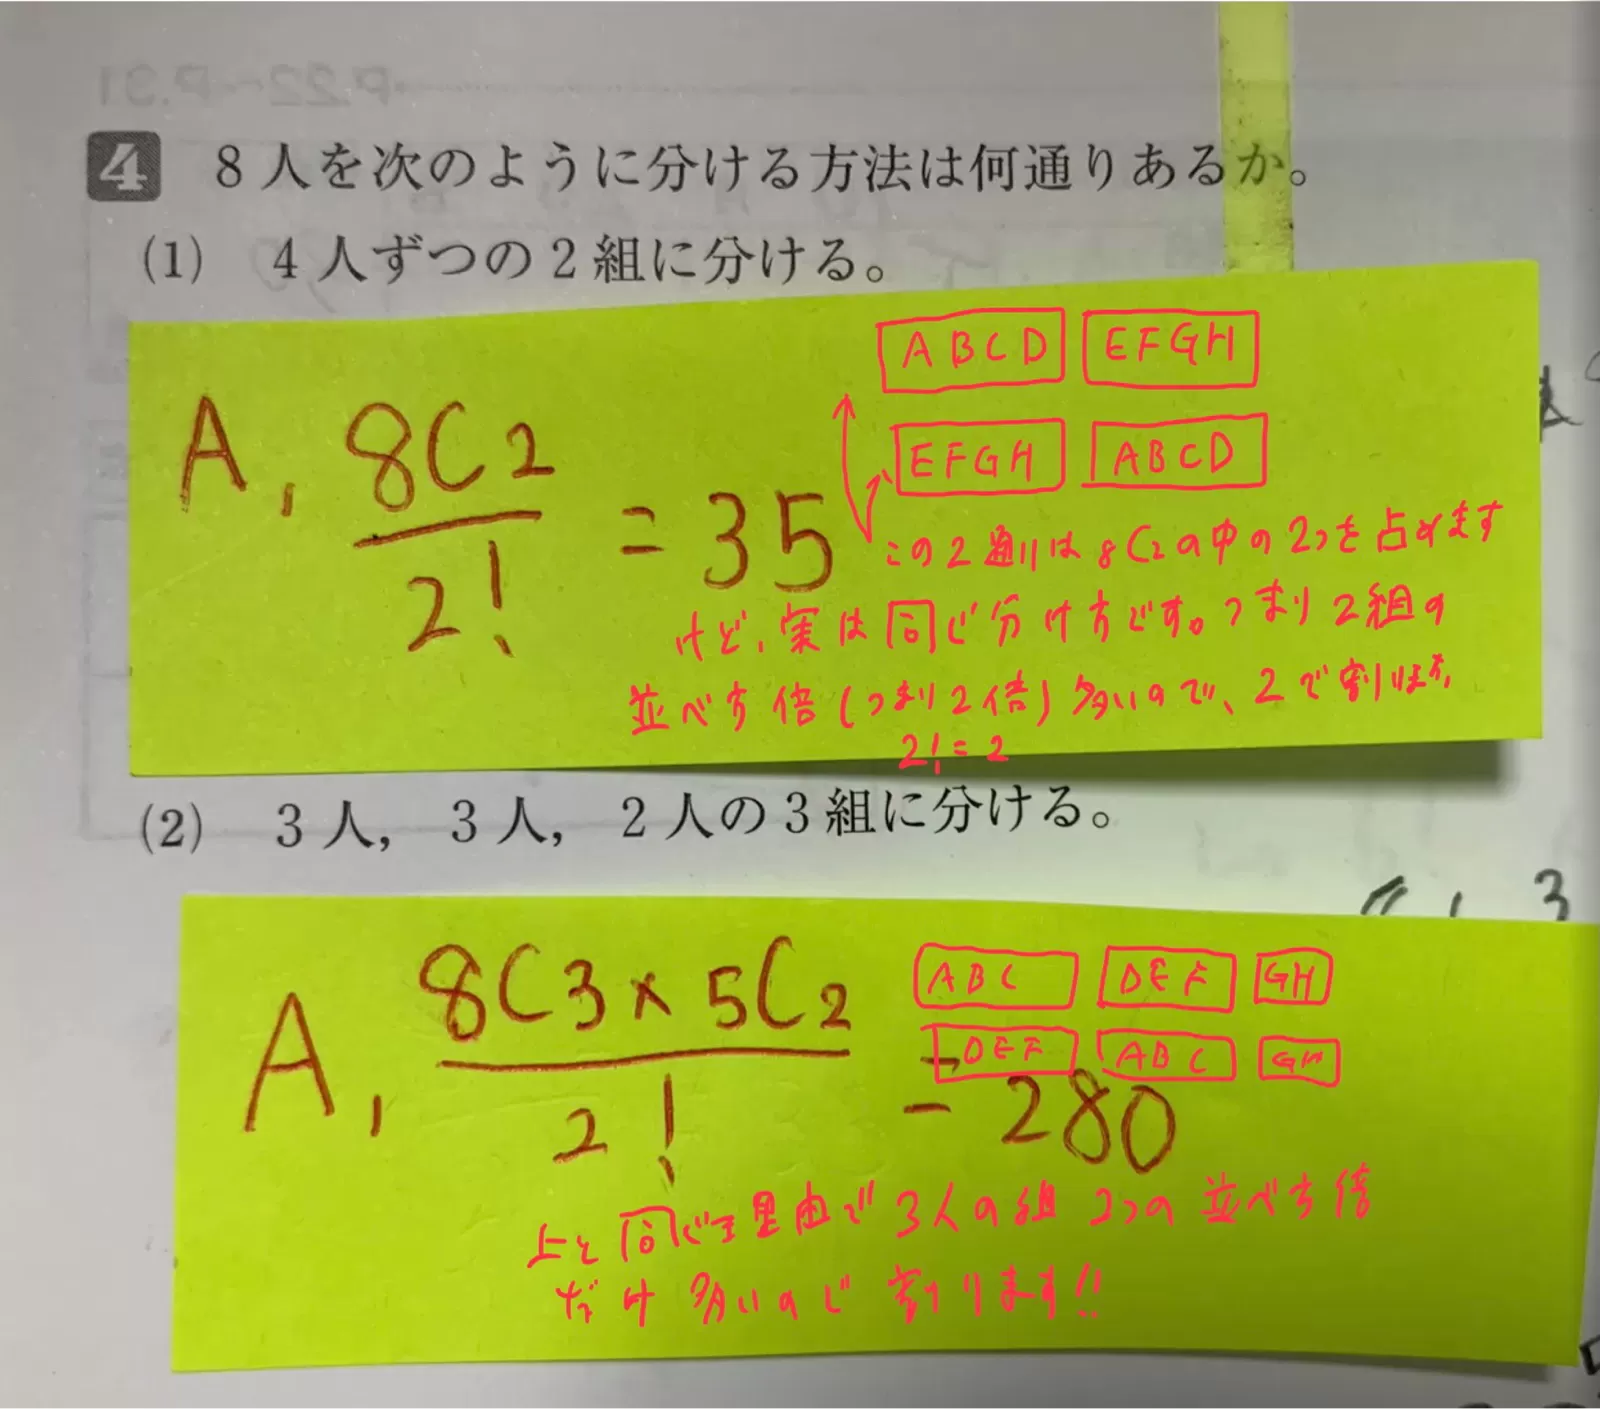 4 8人を次のように分ける方法は何通りあるか。
(1) 4人ずつの2組に分ける。
A, 8C2/2! = 35
ABCD EFGH
EFGH ABCD
この2通りは8C2の中の2つを占めます
けど、実は同じ分け方です。つまり2組の
並べ方倍(つまり2倍)多いので、2で割ります。
2! = 2
(2) 3人, 3人, 2人の3組に分ける。
A, 8C3×5C2/2! = 280
ABC DEF GH
DEF ABC GH
上と同じ理由で3人の組2つの並べ方倍
だけ多いので割ります!!